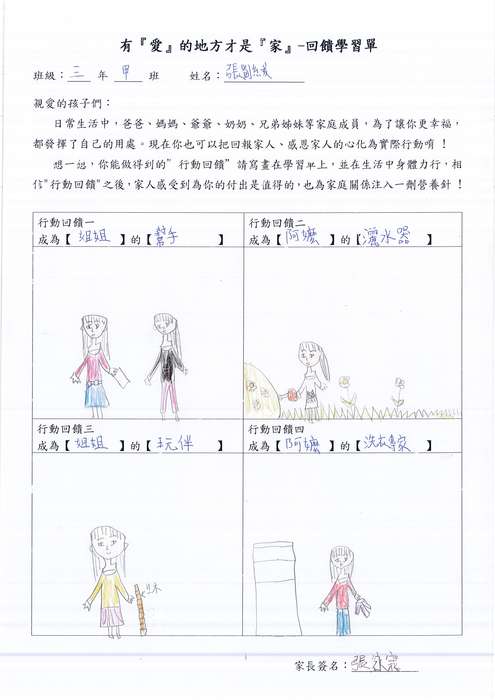 有『愛』的地方才是『家』-回饋學習單
班級：三 年 甲 班 姓名：張
親愛的孩子們：
日常生活中，爸爸、媽媽、爺爺、奶奶、兄弟姊妹等家庭成員，為了讓你更幸福，
都發揮了自己的用處。現在你也可以把回報家人、感恩家人的心化為實際行動唷！
想一想，你能做得到的"行動回饋"請寫畫在學習單上，並在生活中身體力行，相
信"行動回饋"之後，家人感受到為你的付出是值得的，也為家庭關係注入一劑營養針！
行動回饋一
成為【姐姐】的【幫手】
行動回饋二
成為【阿嬤】的【灑水器】
行動回饋三
成為【姐姐】的【玩伴】
行動回饋四
成為【阿嬤】的【洗衣專家】
家長簽名：張